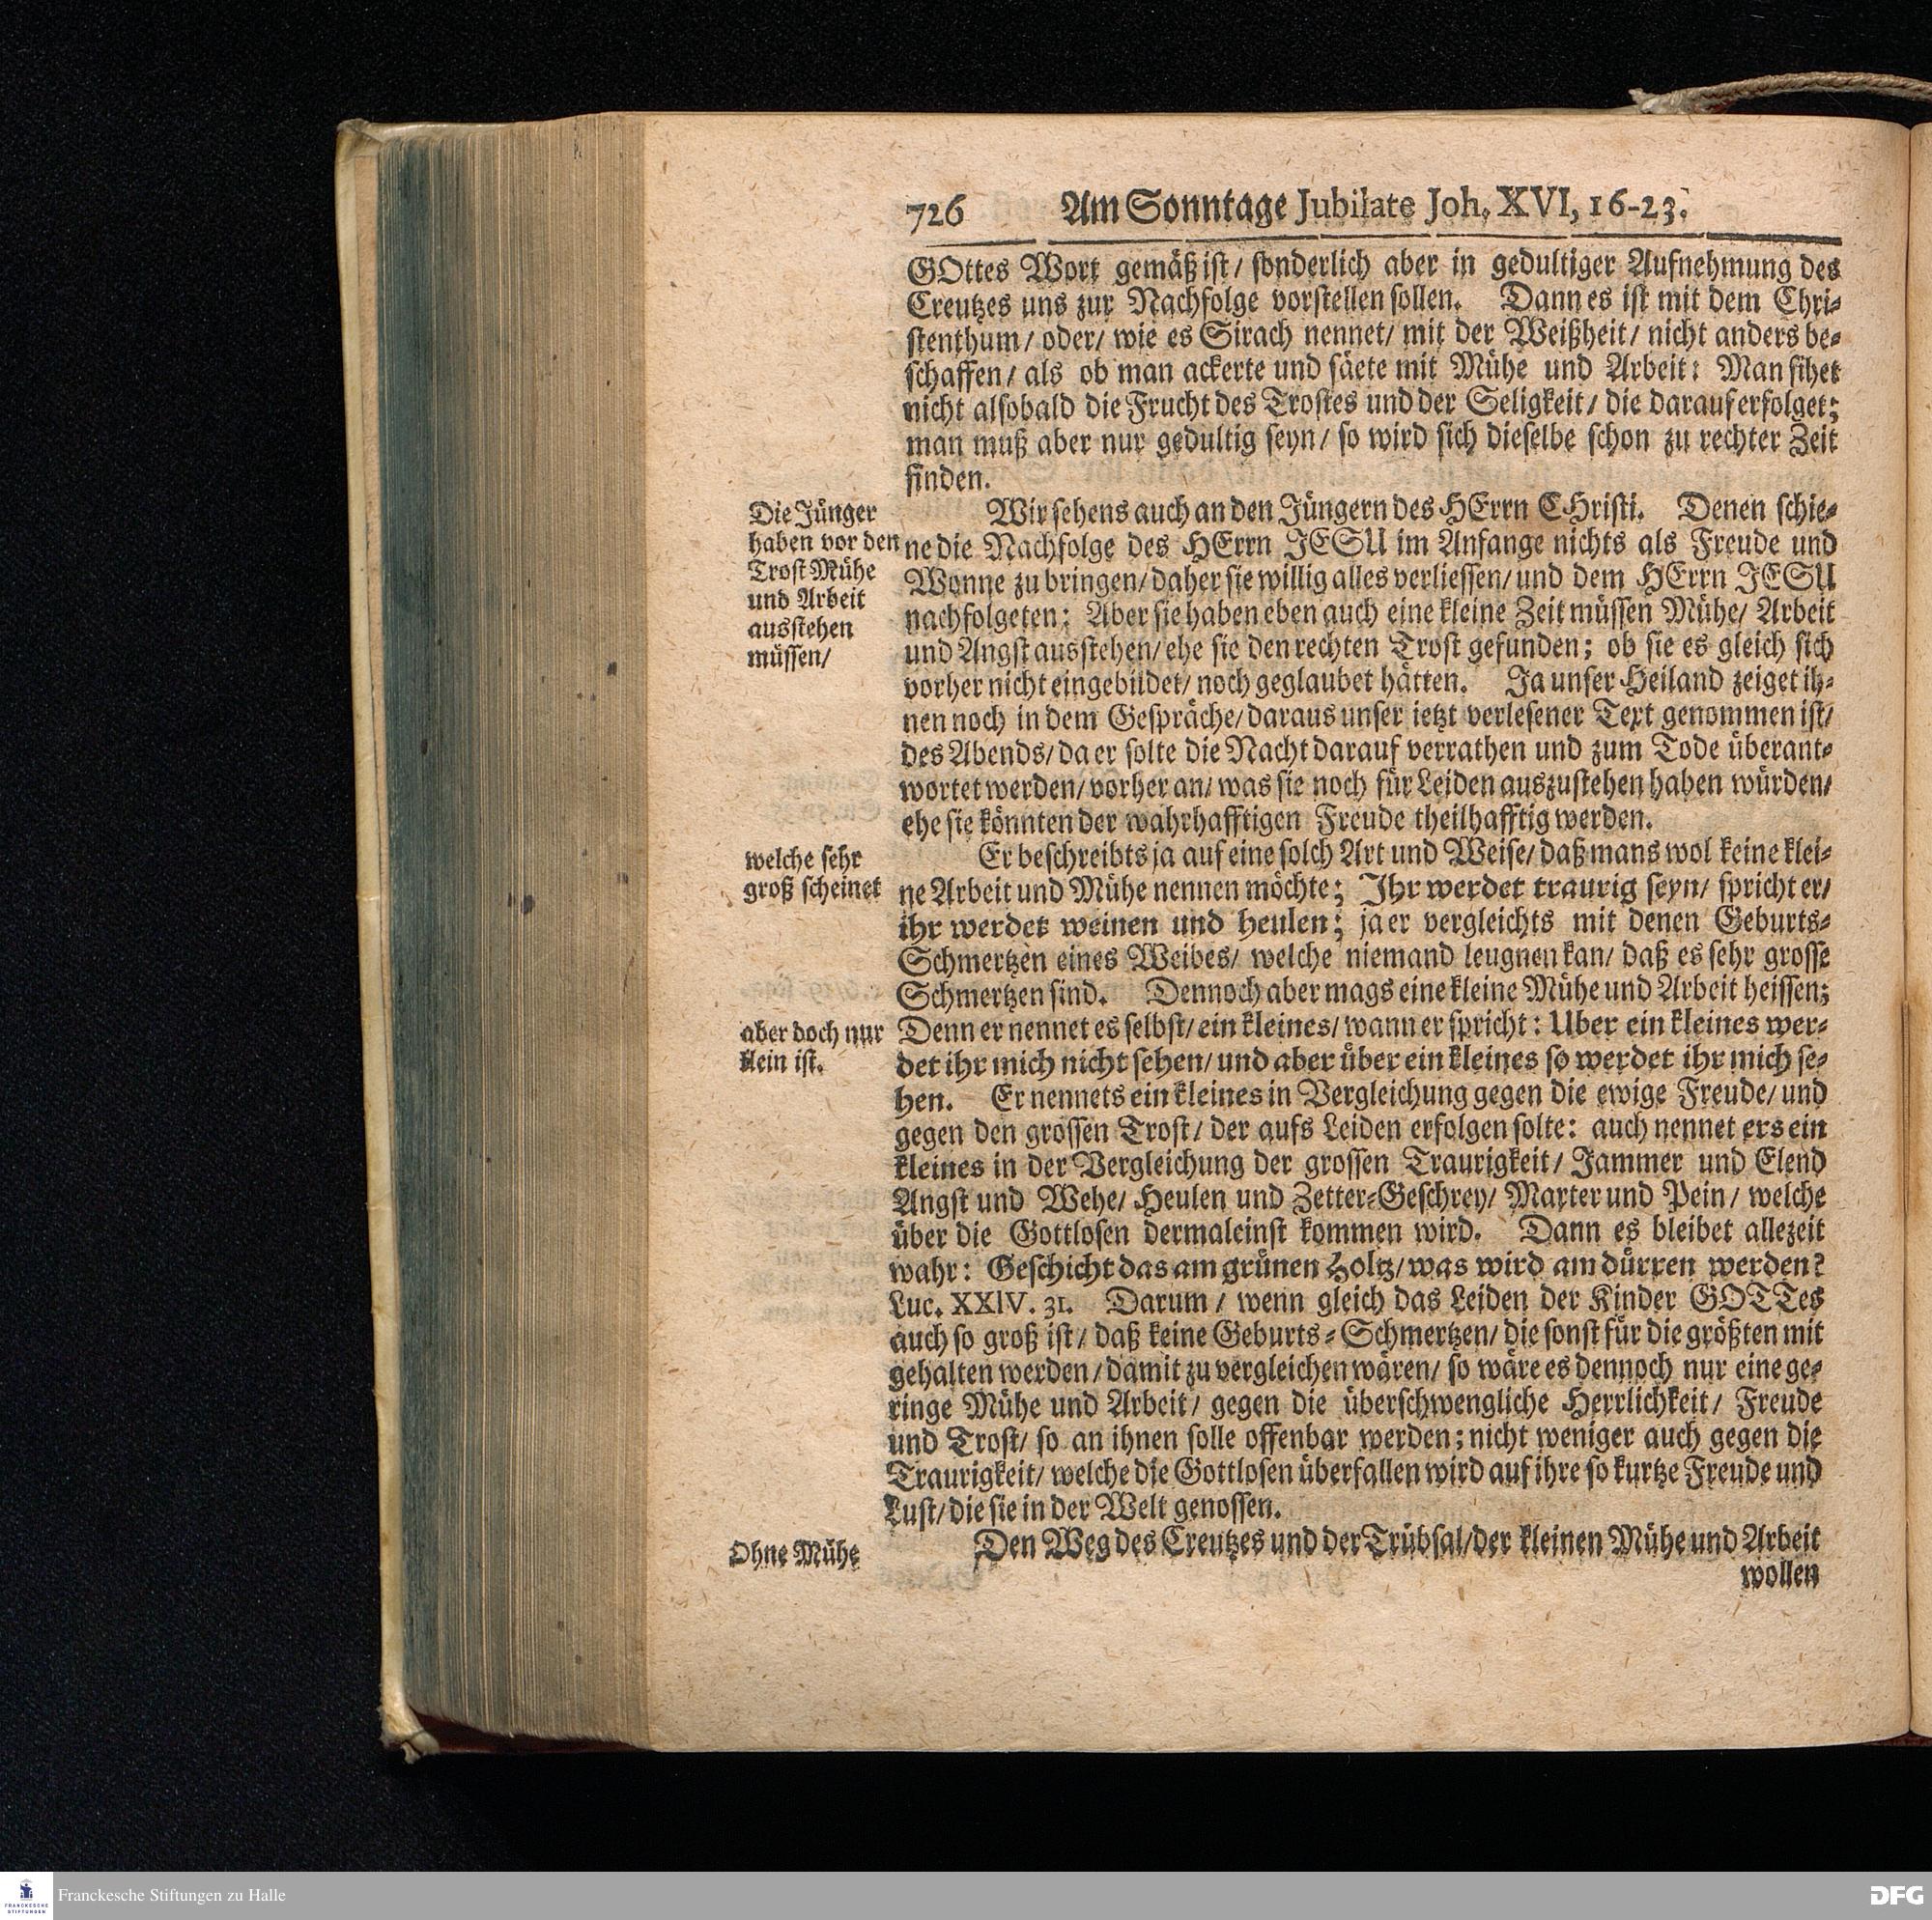 726 Am Sonntage Jubilate Joh. XVI, 16-23.
GOttes Wort gemäß ist/ sonderlich aber in gedultiger Aufnehmung des
Creutzes uns zur Nachfolge vorstellen sollen. Dann es ist mit dem Chri-
stenthum/ oder/ wie es Sirach nennet/ mit der Weißheit/ nicht anders be-
schaffen/ als ob man ackerte und säete mit Mühe und Arbeit: Man sihet
nicht alsobald die Frucht des Trostes und der Seligkeit/ die darauf erfolget;
man muß aber nur gedultig seyn/ so wird sich dieselbe schon zu rechter Zeit
finden.
Die Jünger
haben vor den
Trost Mühe
und Arbeit
ausstehen
müssen/
Wir sehens auch an den Jüngern des HErrn CHristi. Denen schie-
ne die Nachfolge des HErrn JESU im Anfange nichts als Freude und
Wonne zu bringen/ daher sie willig alles verliessen/ und dem HErrn JESU
nachfolgeten; Aber sie haben eben auch eine kleine Zeit müssen Mühe/ Arbeit
und Angst ausstehen/ ehe sie den rechten Trost gefunden; ob sie es gleich sich
vorher nicht eingebildet/ noch geglaubet hätten. Ja unser Heiland zeiget ih-
nen noch in dem Gespräche/ daraus unser ietzt verlesener Text genommen ist/
des Abends/ da er solte die Nacht darauf verrathen und zum Tode überant-
wortet werden/ vorher an/ was sie noch für Leiden auszustehen haben würden/
ehe sie könnten der wahrhafftigen Freude theilhafftig werden.
welche sehr
groß scheinet
Er beschreibts ja auf eine solch Art und Weise/ daß mans wol keine klei-
ne Arbeit und Mühe nennen möchte; Ihr werdet traurig seyn/ spricht er/
ihr werdet weinen und heulen; ja er vergleichts mit denen Geburts-
Schmertzen eines Weibes/ welche niemand leugnen kan/ daß es sehr grosse
Schmertzen sind. Dennoch aber mags eine kleine Mühe und Arbeit heissen;
aber doch nur
klein ist.
Denn er nennet es selbst/ ein kleines/ wann er spricht: Uber ein kleines wer-
det ihr mich nicht sehen/ und aber über ein kleines so werdet ihr mich se-
hen. Er nennets ein kleines in Vergleichung gegen die ewige Freude/ und
gegen den grossen Trost/ der aufs Leiden erfolgen solte: auch nennet ers ein
kleines in der Vergleichung der grossen Traurigkeit/ Jammer und Elend
Angst und Wehe/ Heulen und Zetter-Geschrey/ Marter und Pein/ welche
über die Gottlosen dermaleinst kommen wird. Dann es bleibet allezeit
wahr: Geschicht das am grünen Holtz/ was wird am dürren werden?
Luc. XXIV. 31. Darum/ wenn gleich das Leiden der Kinder GOTTes
auch so groß ist/ daß keine Geburts-Schmertzen/ die sonst für die größten mit
gehalten werden/ damit zu vergleichen wären/ so wäre es dennoch nur eine ge-
ringe Mühe und Arbeit/ gegen die überschwengliche Herrlichkeit/ Freude
und Trost/ so an ihnen solle offenbar werden; nicht weniger auch gegen die
Traurigkeit/ welche die Gottlosen überfallen wird auf ihre so kurtze Freude und
Lust/ die sie in der Welt genossen.
Ohne Mühe
Den Weg des Creutzes und der Trübsal/ der kleinen Mühe und Arbeit
wollen
FRANCKESCHE
STIFTUNGEN
Franckesche Stiftungen zu Halle
DFG